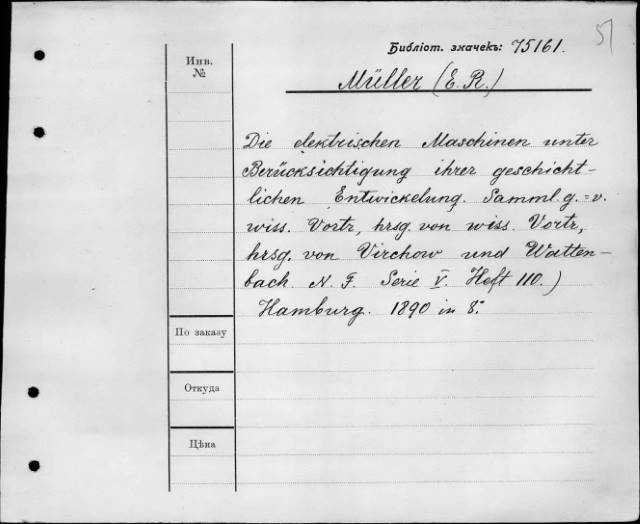 51
Библіот. значекъ: 75161.
Инв.
№
Müller (E. R.)
Die elektrischen Maschinen unter
Berücksichtigung ihrer geschicht-
lichen Entwickelung. Samml. g.=v.
wiss. Vortr., hrsg. von wiss. Vortr.,
hrsg. von Virchow und Watten-
bach. N. F. Serie V. Heft 110.)
Hamburg. 1890 in 8.°
По заказу
Откуда
Цѣна